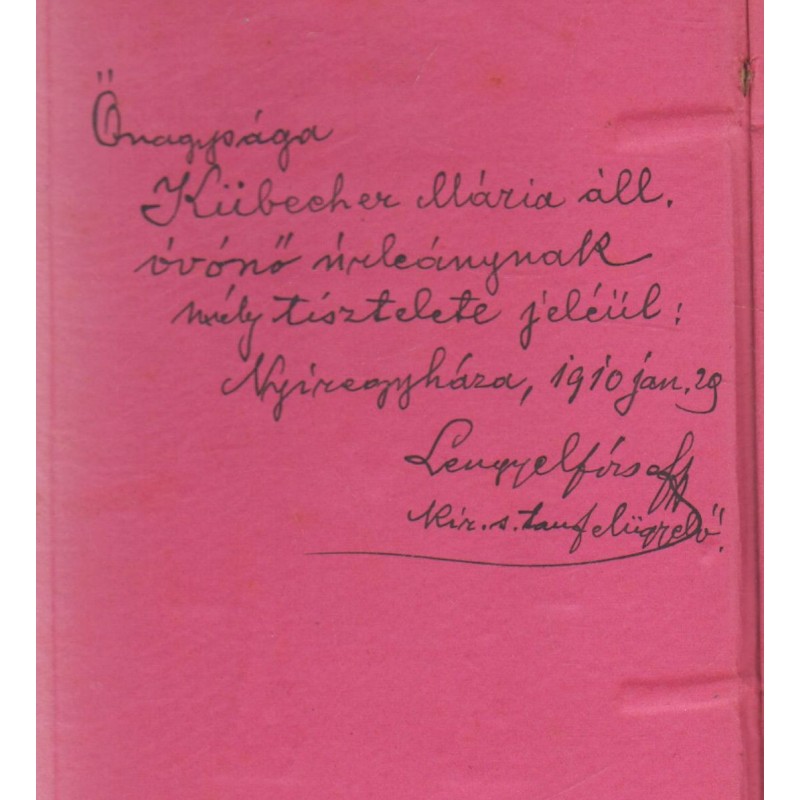 Őnagysága
Kübecher Mária áll.
óvónő úrleánynak
mély tisztelete jeléül:
Nyiregyháza, 1910 jan. 29
Lengyelfi József
kir. s. tanfelügyelő!